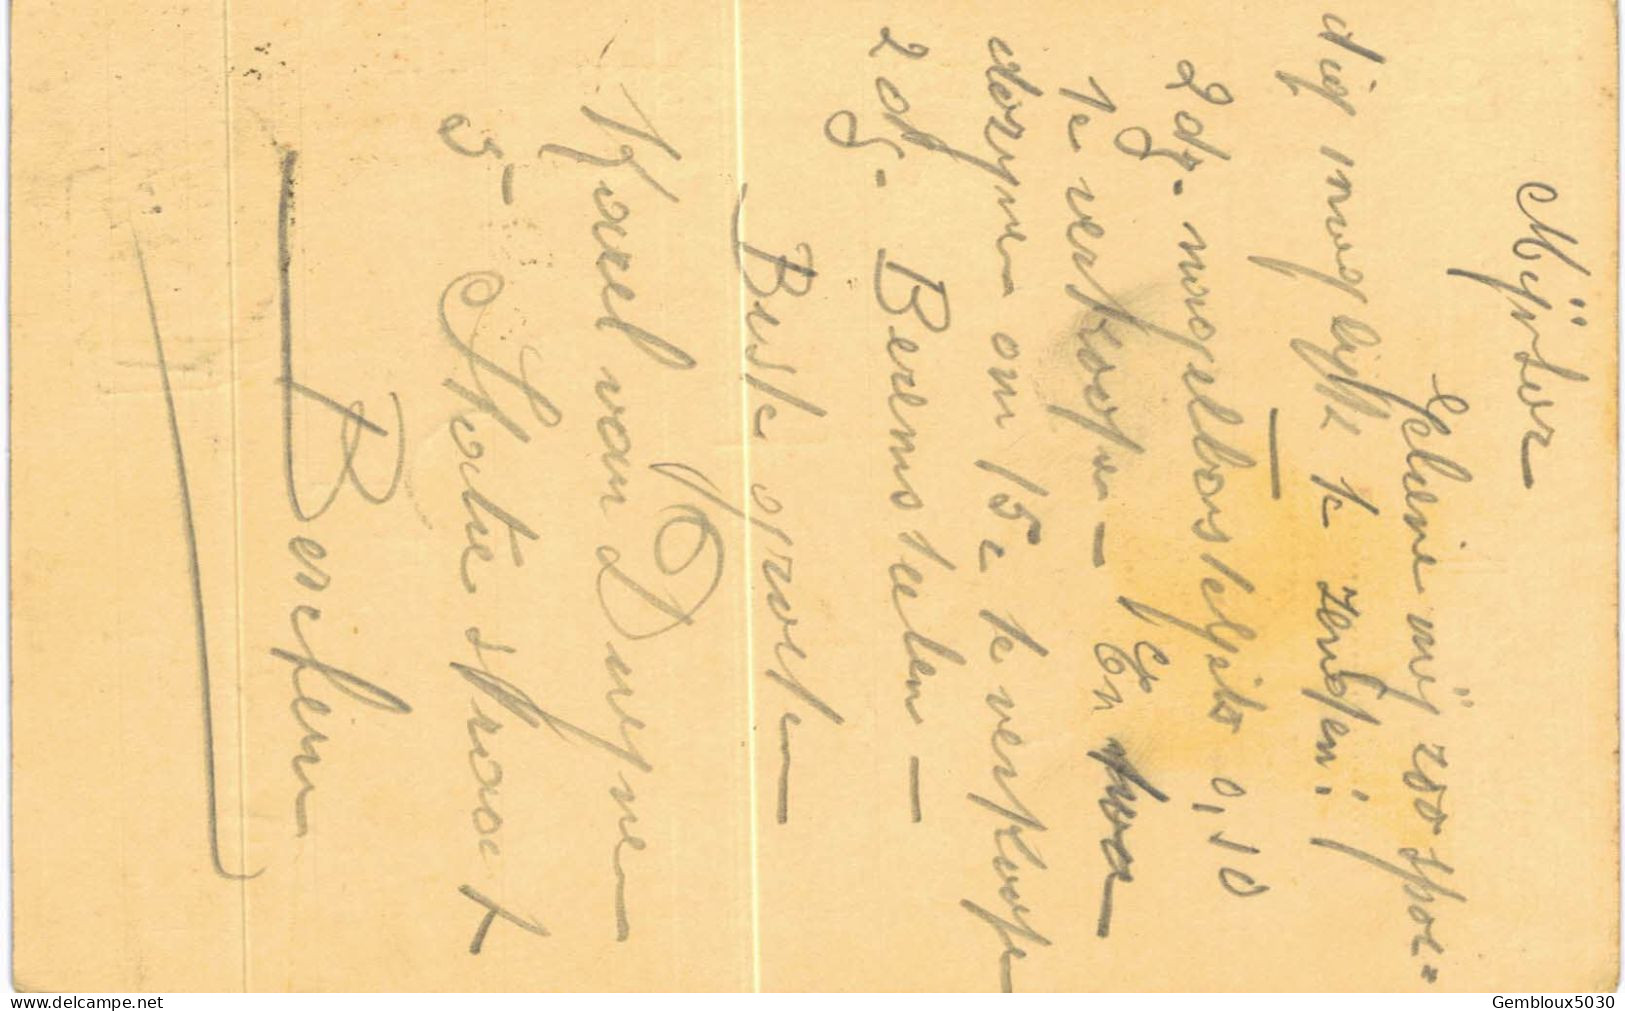 Mijnheer
Gelieve mij zoo spoe=
dig mogelijk te zenden:
2 dz. nagelborsteltjes 0,10
te verkoopen — En twee
dozyne om 15c te verkoopen
2 dz. Beremsteelen —
Beste groeten
Karel van Duyne
5 – Statie straat
Berchem
delcampe.net
Gembloux5030